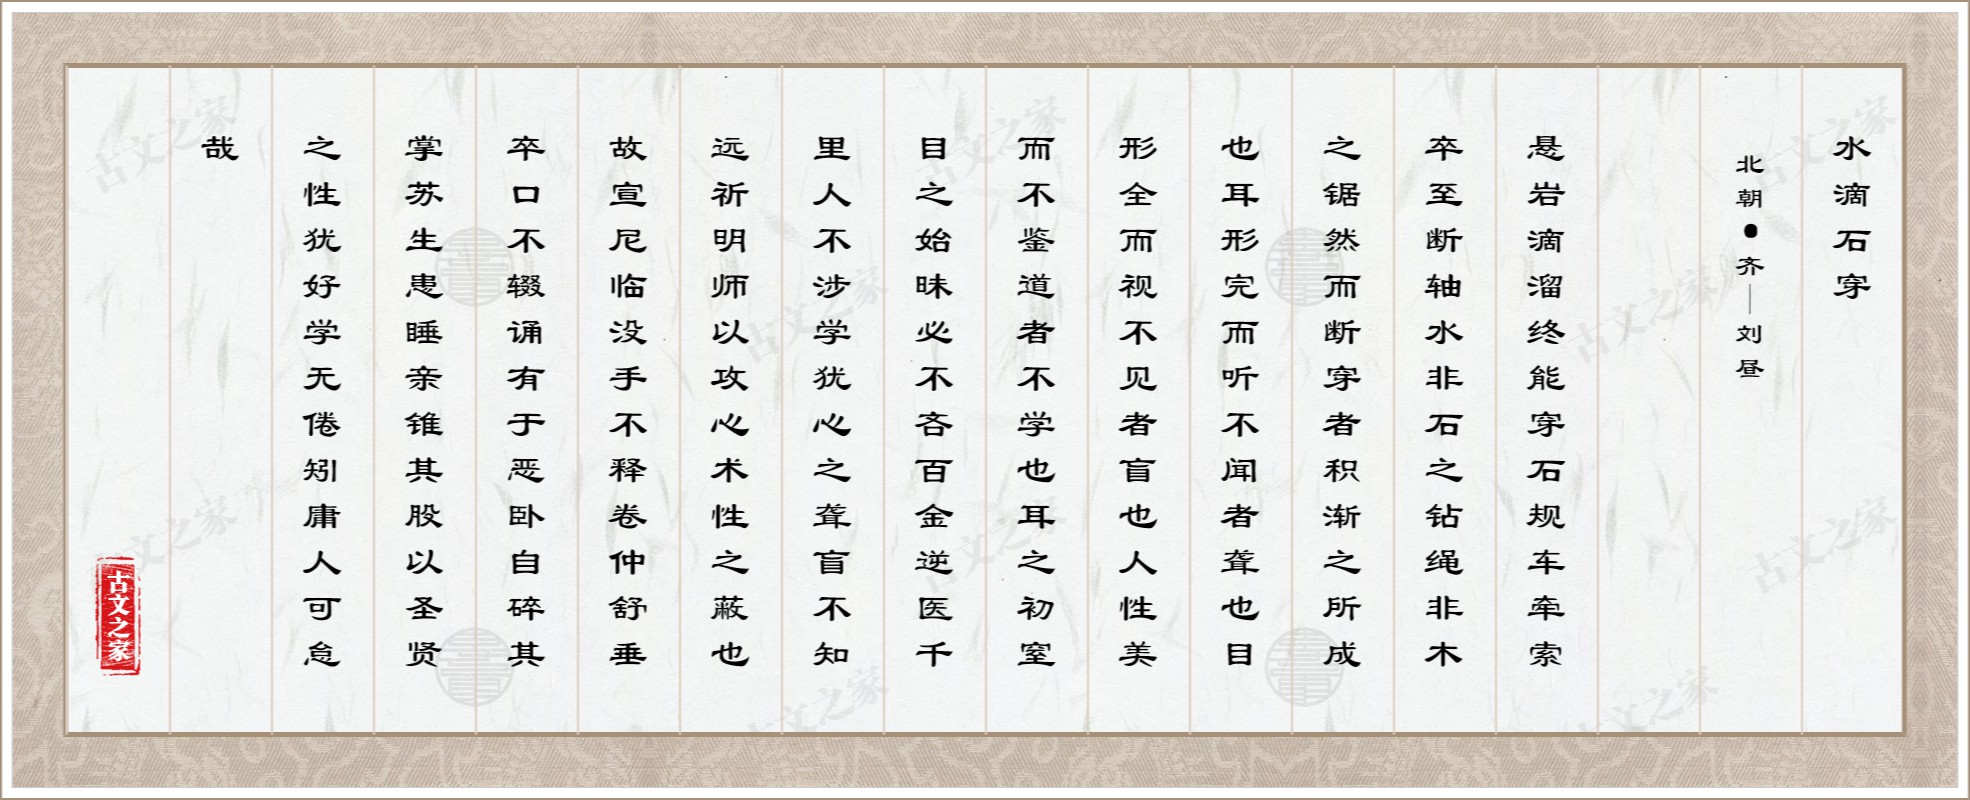 水滴石穿
北朝●齐—刘昼
悬岩滴溜终能穿石规车牵索
卒至断轴水非石之钻绳非木
之锯然而断穿者积渐之所成
也耳形完而听不闻者聋也目
形全而视不见者盲也人性美
而不鉴道者不学也耳之初窒
目之始昧必不吝百金逆医千
里人不涉学犹心之聋盲不知
远祈明师以攻心术性之蔽也
故宣尼临没手不释卷仲舒垂
卒口不辍诵有于恶卧自碎其
掌苏生患睡亲锥其股以圣贤
之性犹好学无倦矧庸人可怠
哉
古文之家